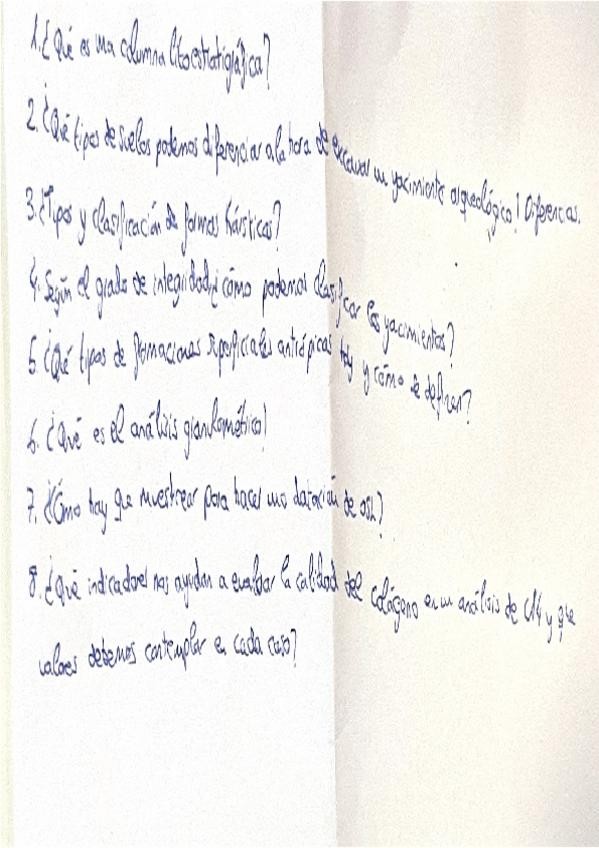 1. ¿Qué es una columna litoestratigráfica?
2. ¿Qué tipos de suelos podemos diferenciar a la hora de excavar un yacimiento arqueológico? Diferencias.
3. ¿Tipos y clasificación de formas kársticas?
4. Según el grado de integridad ¿cómo podemos clasificar los yacimientos?
5. ¿Qué tipos de formaciones superficiales antrópicas hay y cómo se definen?
6. ¿Qué es el análisis granulométrico?
7. ¿Cómo hay que muestrear para hacer una datación de OSL?
8. ¿Qué indicadores nos ayudan a evaluar la calidad del colágeno en un análisis de C14 y que
valores debemos contemplar en cada caso?